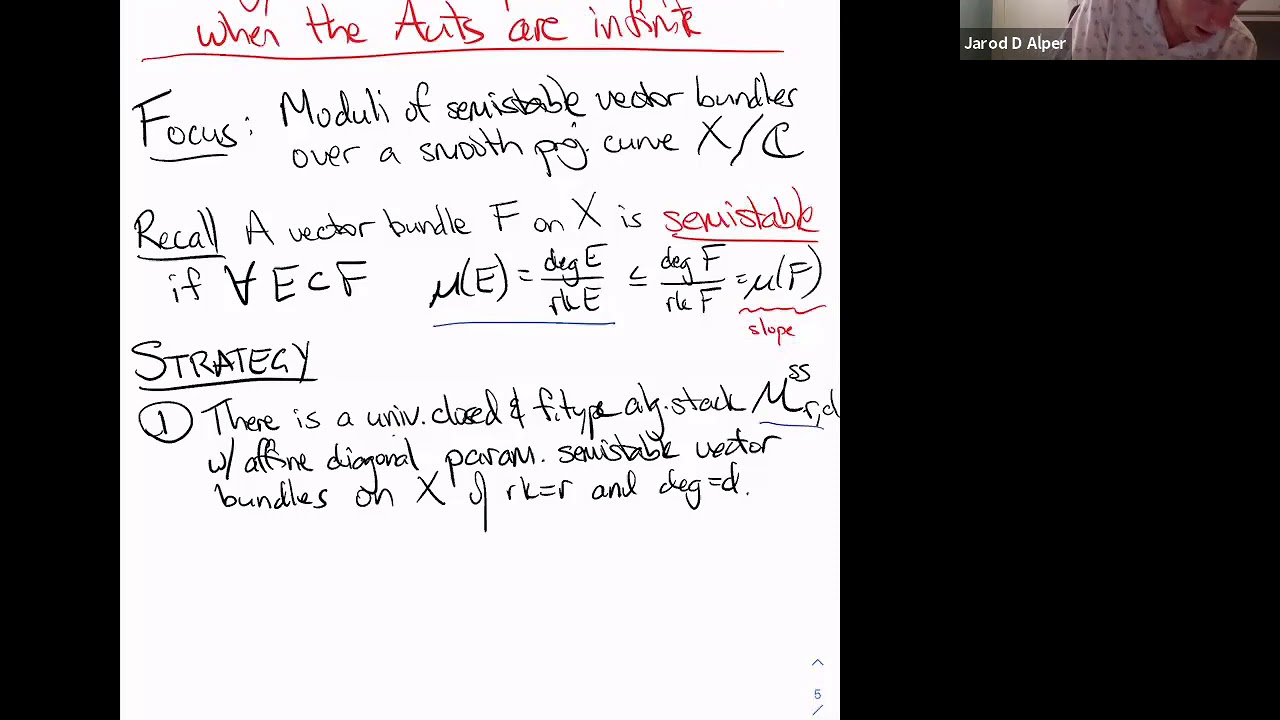 when the Auts are infinite
Jarod D Alper
Focus: Moduli of semistable vector bundles
over a smooth proj. curve X/ℂ
Recall A vector bundle F on X is semistable
if ∀ E⊂F μ(E) = deg E / rk E ≤ deg F / rk F = μ(F)
slope
STRATEGY
① There is a univ. closed & f.type alg. stack M^ss_r,d
w/ affine diagonal param. semistable vector
bundles on X of rk=r and deg=d.
5